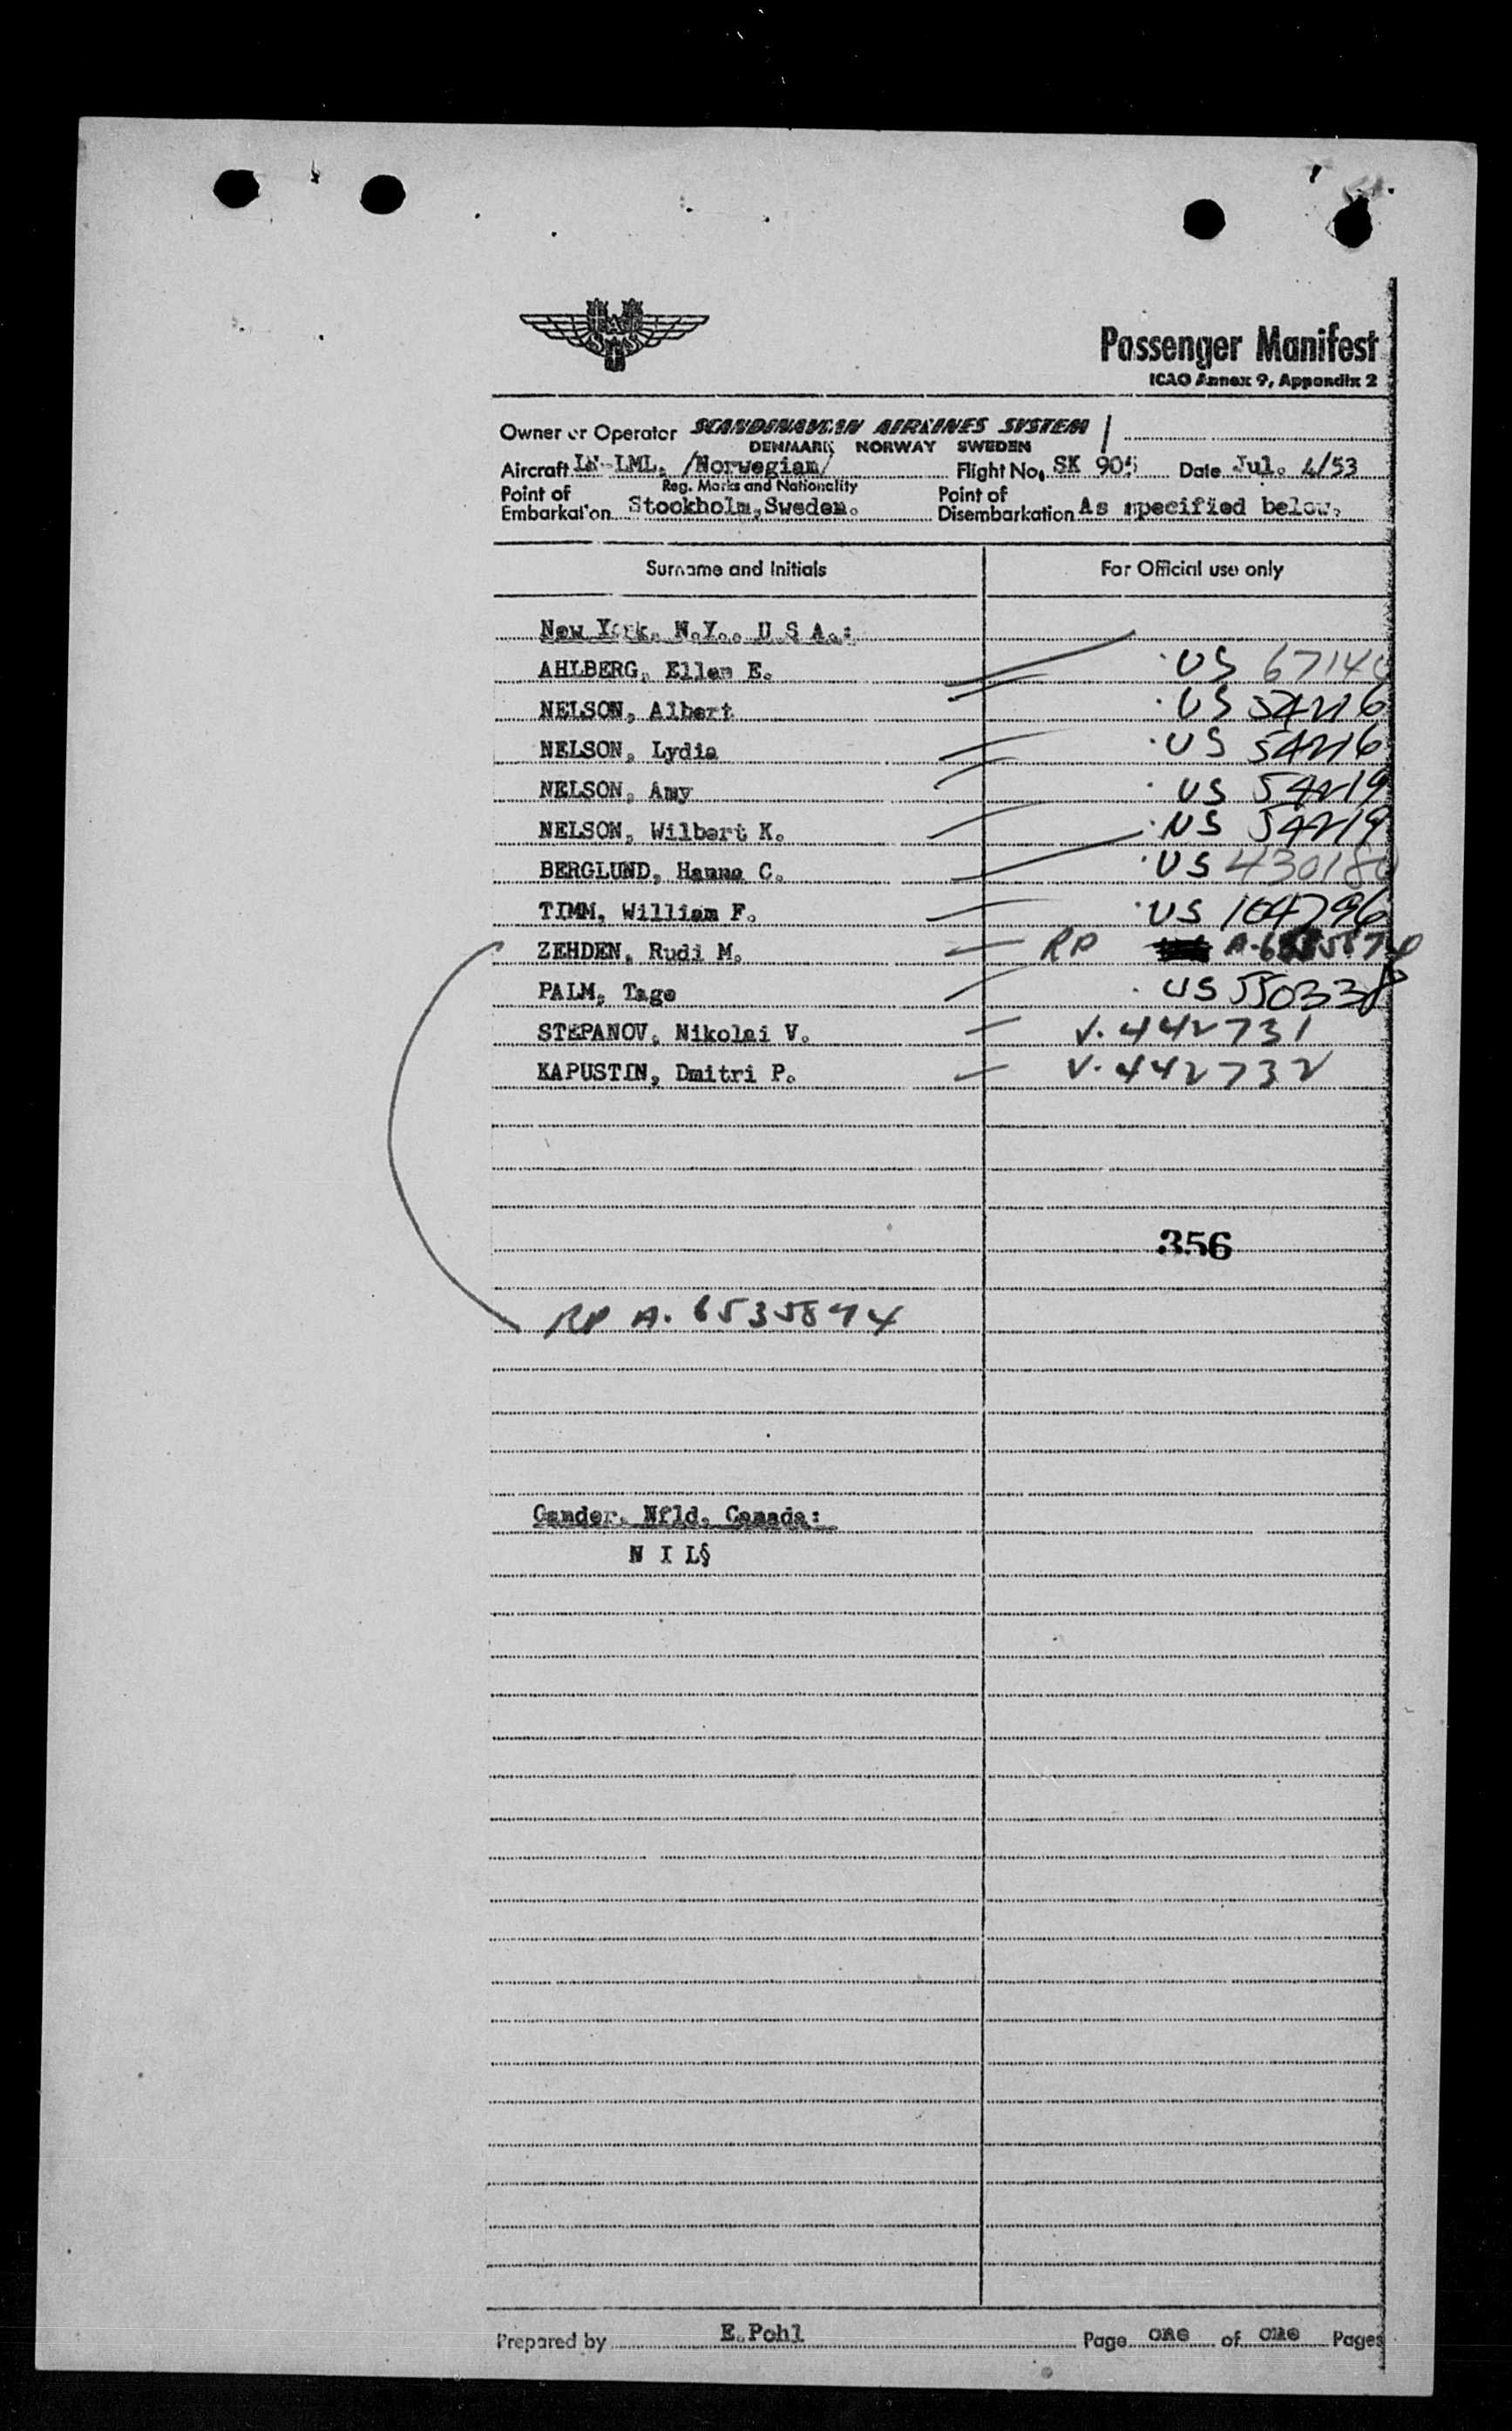 SAS
Passenger Manifest
ICAO Annex 9, Appendix 2
Owner or Operator SCANDINAVIAN AIRLINES SYSTEM
DENMARK NORWAY SWEDEN
Aircraft LN-LML. /Norwegian/ Flight No. SK 905 Date Jul. 4/53
Reg. Marks and Nationality
Point of Embarkation Stockholm, Sweden. Point of Disembarkation As specified below.
Surname and Initials For Official use only
New York. N.Y.. U S A.:
AHLBERG, Ellen E. US 67140
NELSON, Albert US 54216
NELSON, Lydia US 54216
NELSON, Amy US 54219
NELSON, Wilbert K. US 54219
BERGLUND, Hanna C. US 430180
TIMM, William F. US 104796
ZEHDEN, Rudi M. RP
PALM, Tage US 550338
STEPANOV, Nikolai V. V. 442731
KAPUSTIN, Dmitri P. V. 442732
356
RP A. 6535874
Gander. Nfld. Canada:
N I L§
Prepared by E.Pohl Page one of one Pages